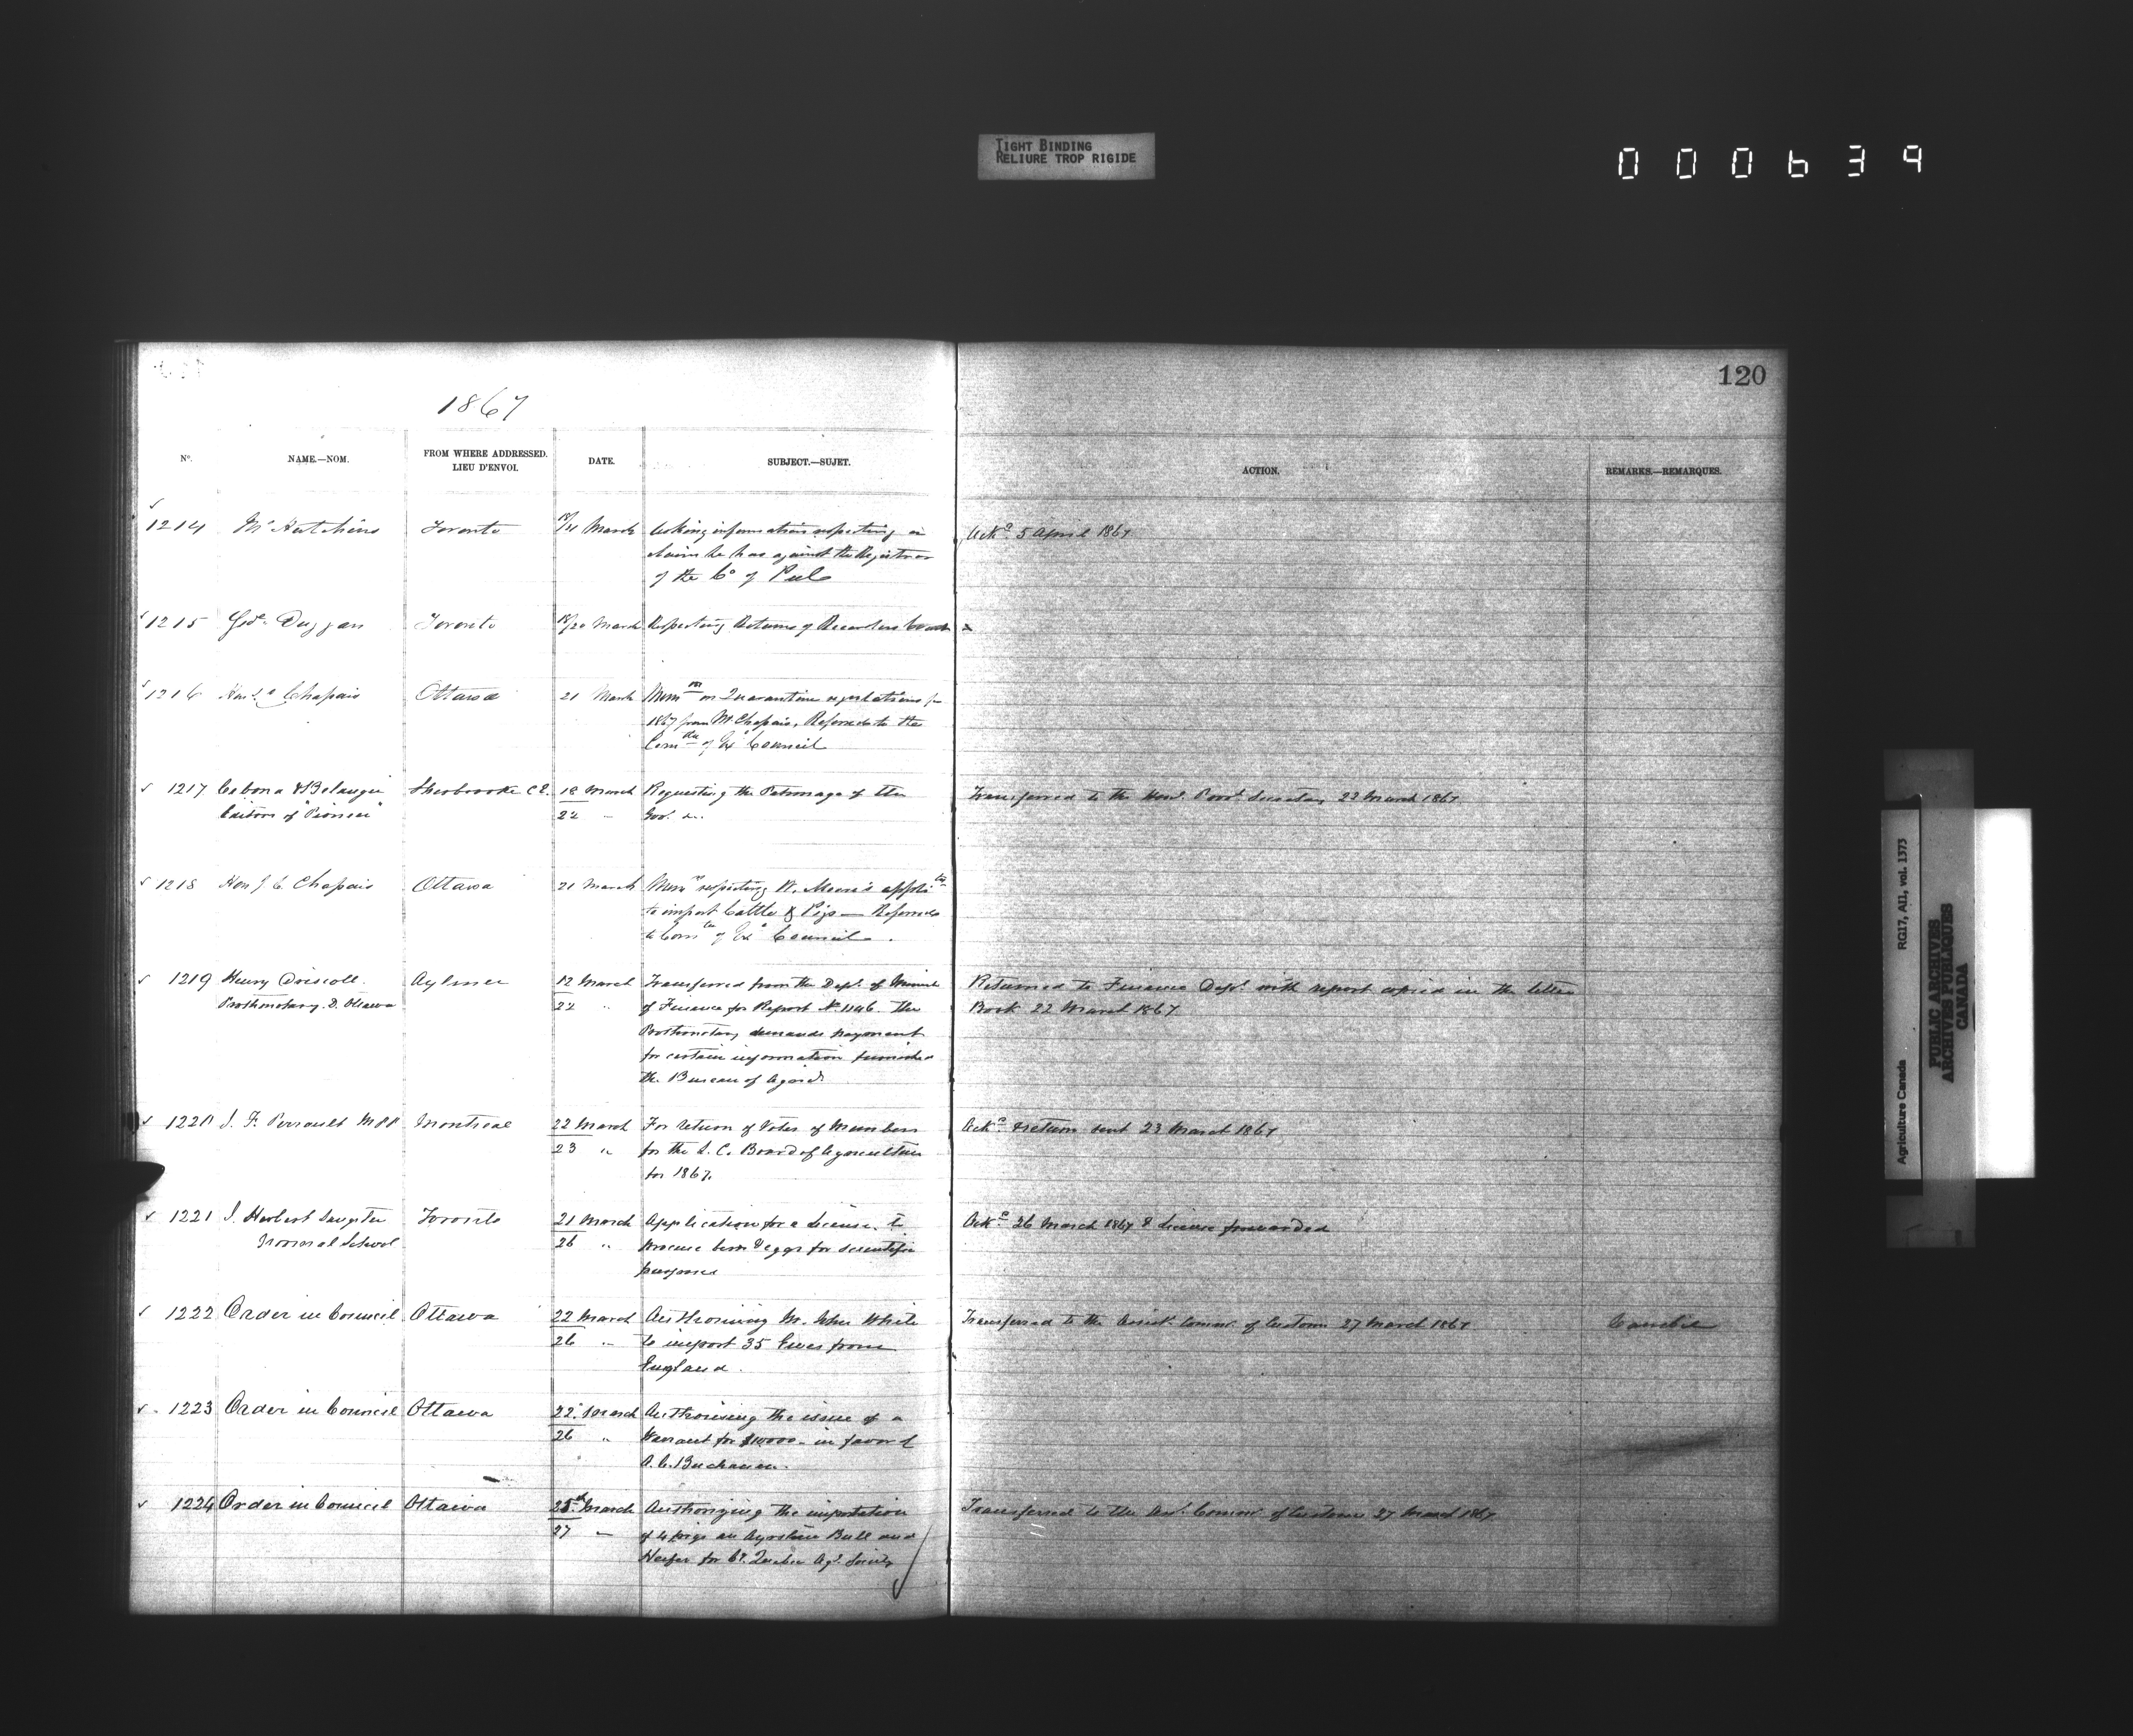 TIGHT BINDING
RELIURE TROP RIGIDE
000639
120
1867
No. NAME.—NOM. FROM WHERE ADDRESSED. LIEU D'ENVOI. DATE. SUBJECT.—SUJET. ACTION. REMARKS.—REMARQUES.
1214 Mr Hutchins Toronto 18/21 March Asking information respecting a Ackd 5 April 1867
claim he has against the Registrar
of the Co of Peel
1215 Geo. Duggan Toronto 18/20 March Respecting Returns of Recorders Court
1216 Chapais Ottawa 21 March Mem on Quarantine regulations for
1867 from Mr Chapais, Referred to the
Comtee of Ex Council
1217 & Belanger Sherbrooke C E. 18 March Requesting the Patronage of the Transferred to the Honl. Provl. Secretary 22 March 1867
Editors of "Pioneer" 22 " Gov. &c.
1218 Hon J C Chapais Ottawa 21 March Mem respecting Mr. applic
to import Cattle & Pigs — Referred
to Comtee of Ex Council.
1219 Henry Driscoll. Aylmer 12 March Transferred from the Dept. of Minister Returned to Finance Dept. with report copied in the letter
Prothonotary. D. Ottawa 22 " of Finance for Report No 1146. The Book 22 March 1867.
Prothonotary demands payment
for certain information furnished
the Bureau of Agricl.
1220 J. F. Perrault MPP Montreal 22 March For return of Votes of Members Ackd. & return sent 23 March 1867
23 " for the L. C. Board of Agriculture
for 1867.
1221 J. Herbert Sangster Toronto 21 March Application for a License to Ackd. 26 March 1867 & License forwarded
Normal School 26 " procure birds & eggs for scientific
purposes
1222 Order in Council Ottawa 22 March Authorising Mr. John White Transferred to the Assist. Commr. of Customs 27 March 1867
26 " to import 35 Ewes from
England.
1223 Order in Council Ottawa 22 March Authorising the issue of a
26 " Warrant for $10000 - in favor of
A. C. Buchanan.
1224 Order in Council Ottawa 25th March Authorizing the importation Transferred to the Ast. Commr. of Customs 27 March 1867
27 " of 4 pigs an Ayrshire Bull and
Heifer for Co. Quebec Agl. Society
Agriculture Canada RG17, AI1, vol. 1373
PUBLIC ARCHIVES
ARCHIVES PUBLIQUES
CANADA